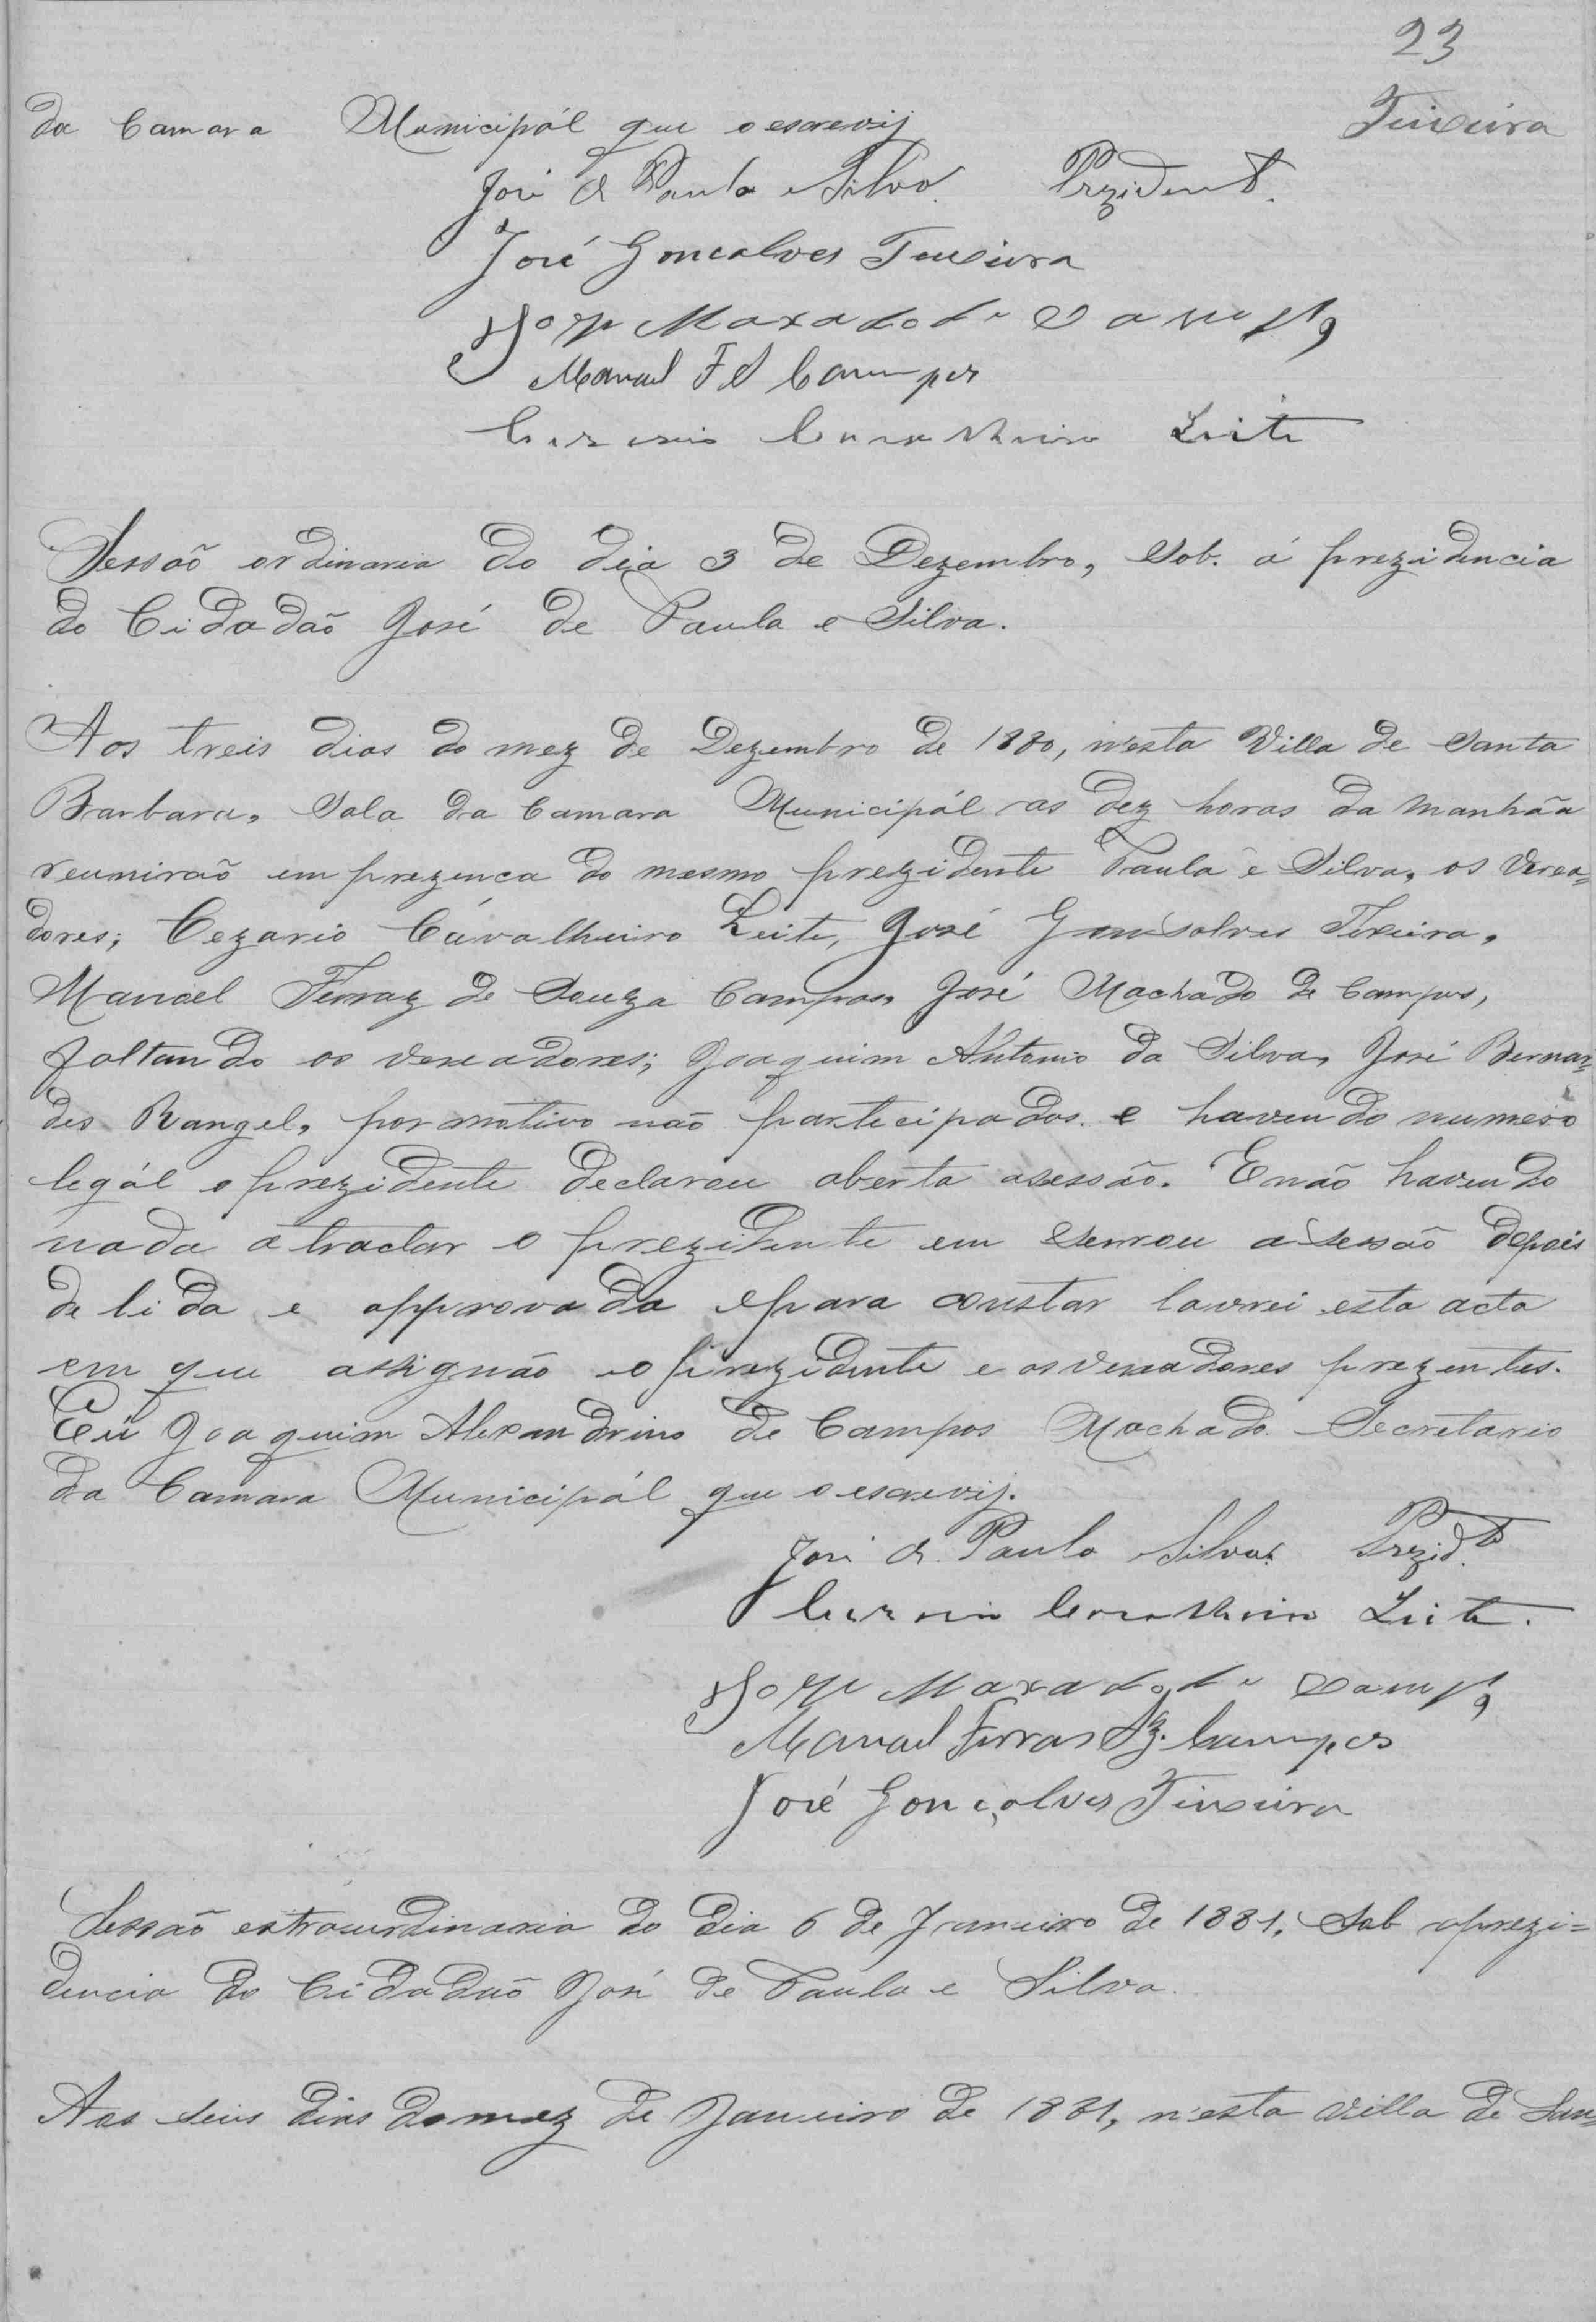 23
Teixeira
da Camara Municipál que o escrevij
José de Paula e Silva. Prezident.
José Gonçalves Teixeira
Joze Maxado de Camps
Manael F S Campos
Cezario Cavalheiro Leite
Sessão ordinaria do dia 3 de Dezembro, Sob. á prezidencia
do Cidadão José de Paula e Silva.
Aos treis dias do mez de Dezembro de 1880, n'esta Villa de Santa
Barbara, Sala da Camara Municipál as dez horas da manhãa
reunirão em prezenca do mesmo prezidente Paula e Silva, os Verea=
dores; Cezario Cavalheiro Leite, José Gonsolves Texeira,
Manoel Ferraz de Souza Campos, José Machado de Campos,
faltando os vereadores; Joaquim Antonio da Silva, José Bernar=
des Rangel, por motivo não participados. e havendo numero
legál o prezidente declarou aberta asessão. E não havendo
nada a tractar o prezidente em serrou a sessão depois
de lida e approvada e para constar lavrei esta acta
em que assignão o prezidente e os vereadores prezentes.
Eu Joaquim Alexandrino de Campos Machado Secretario
da Camara Municipál que o escrevij.
José de Paula Silva Prezid.te
Cezario Cavalheiro Leite.
Joze Maxado de Camps
Manael Ferras Sz. Campos
José Gonçalves Teixeira
Sessão extraurdinaria do dia 6 de Janeiro de 1881, Sob aprezi=
dencia do Cidadão José de Paula e Silva.
Aos seis dias do mez de Janeiro de 1881, n'esta villa de San=